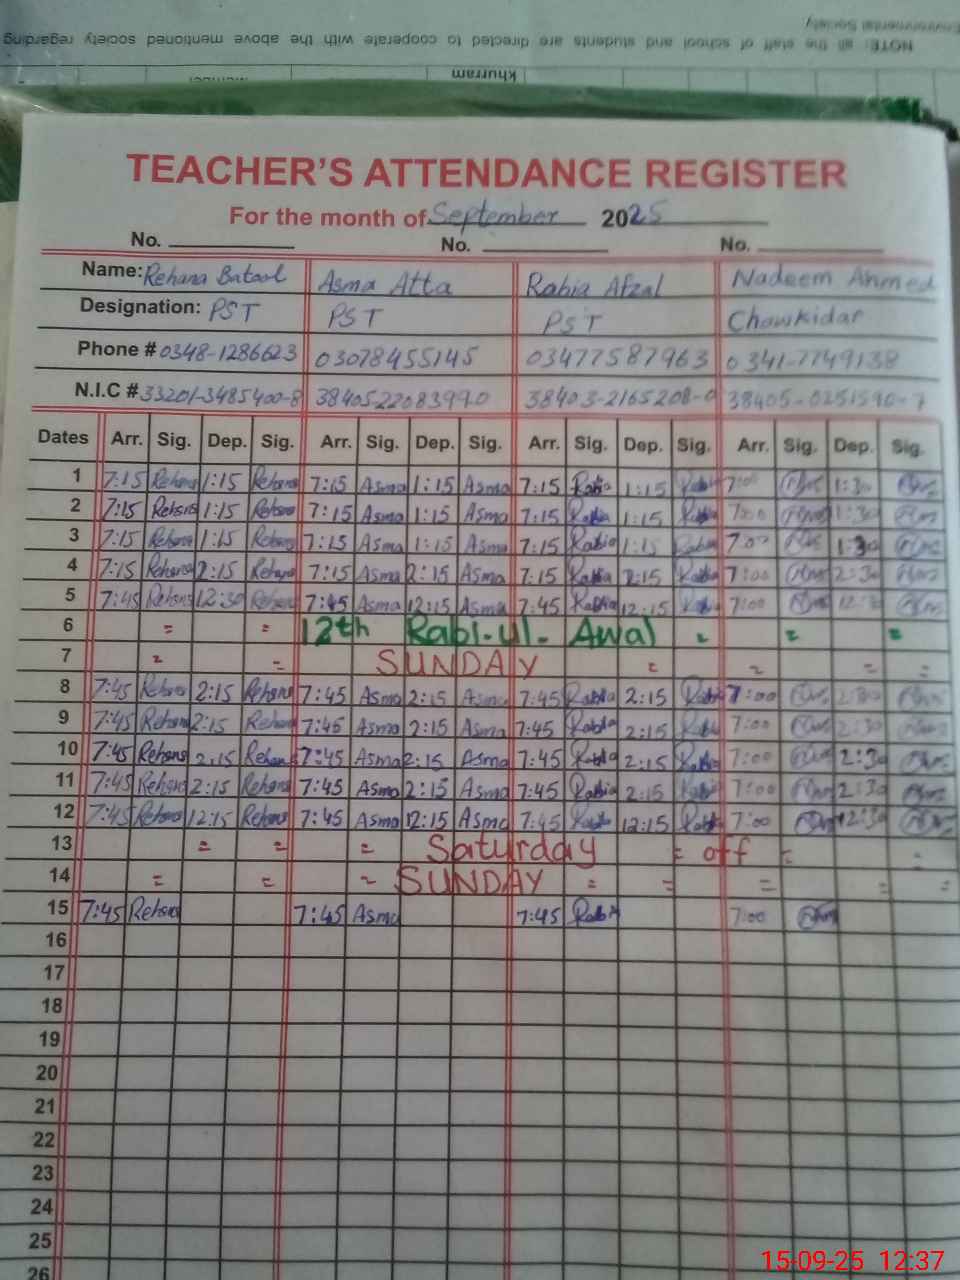 Environmental Society
NOTE: all the staff of school and students are directed to cooperate with the above mentioned society regarding
Khurram
TEACHER'S ATTENDANCE REGISTER
For the month of September 2025
No. No. No.
Name: Rehana Batool Asma Atta Rabia Afzal Nadeem Ahmed
Designation: PST PST PST Chowkidar
Phone # 0348-1286623 03078455145 03477587963 0341-7749138
N.I.C # 33201-3485400-8 3840522083990 38403-2165208-0 38405-0251590-7
Dates Arr. Sig. Dep. Sig. Arr. Sig. Dep. Sig. Arr. Sig. Dep. Sig. Arr. Sig. Dep. Sig.
1 7:15 Rehana 1:15 Rehana 7:15 Asma 1:15 Asma 7:15 Rabia 1:15 Rabia 7:00 1:30
2 7:15 Rehana 1:15 Rehana 7:15 Asma 1:15 Asma 7:15 Rabia 1:15 Rabia 7:00 1:30
3 7:15 Rehana 1:15 Rehana 7:15 Asma 1:15 Asma 7:15 Rabia 1:15 Rabia 7:00 1:30
4 7:15 Rehana 2:15 Rehana 7:15 Asma 2:15 Asma 7:15 Rabia 2:15 Rabia 7:00 2:30
5 7:45 Rehana 12:30 Rehana 7:45 Asma 12:15 Asma 7:45 Rabia 12:15 Rabia 7:00 12:30
6 = = 12th Rabi-ul-Awal = = =
7 = = SUNDAY = = = =
8 7:45 Rehana 2:15 Rehana 7:45 Asma 2:15 Asma 7:45 Rabia 2:15 Rabia 7:00 2:30
9 7:45 Rehana 2:15 Rehana 7:45 Asma 2:15 Asma 7:45 Rabia 2:15 Rabia 7:00 2:30
10 7:45 Rehana 2:15 Rehana 7:45 Asma 2:15 Asma 7:45 Rabia 2:15 Rabia 7:00 2:30
11 7:45 Rehana 2:15 Rehana 7:45 Asma 2:15 Asma 7:45 Rabia 2:15 Rabia 7:00 2:30
12 7:45 Rehana 12:15 Rehana 7:45 Asma 12:15 Asma 7:45 Rabia 12:15 Rabia 7:00 12:30
13 = = = Saturday = off = =
14 = = = SUNDAY = = = = =
15 7:45 Rehana 7:45 Asma 7:45 Rabia 7:00
16
17
18
19
20
21
22
23
24
25
26
15-09-25 12:37